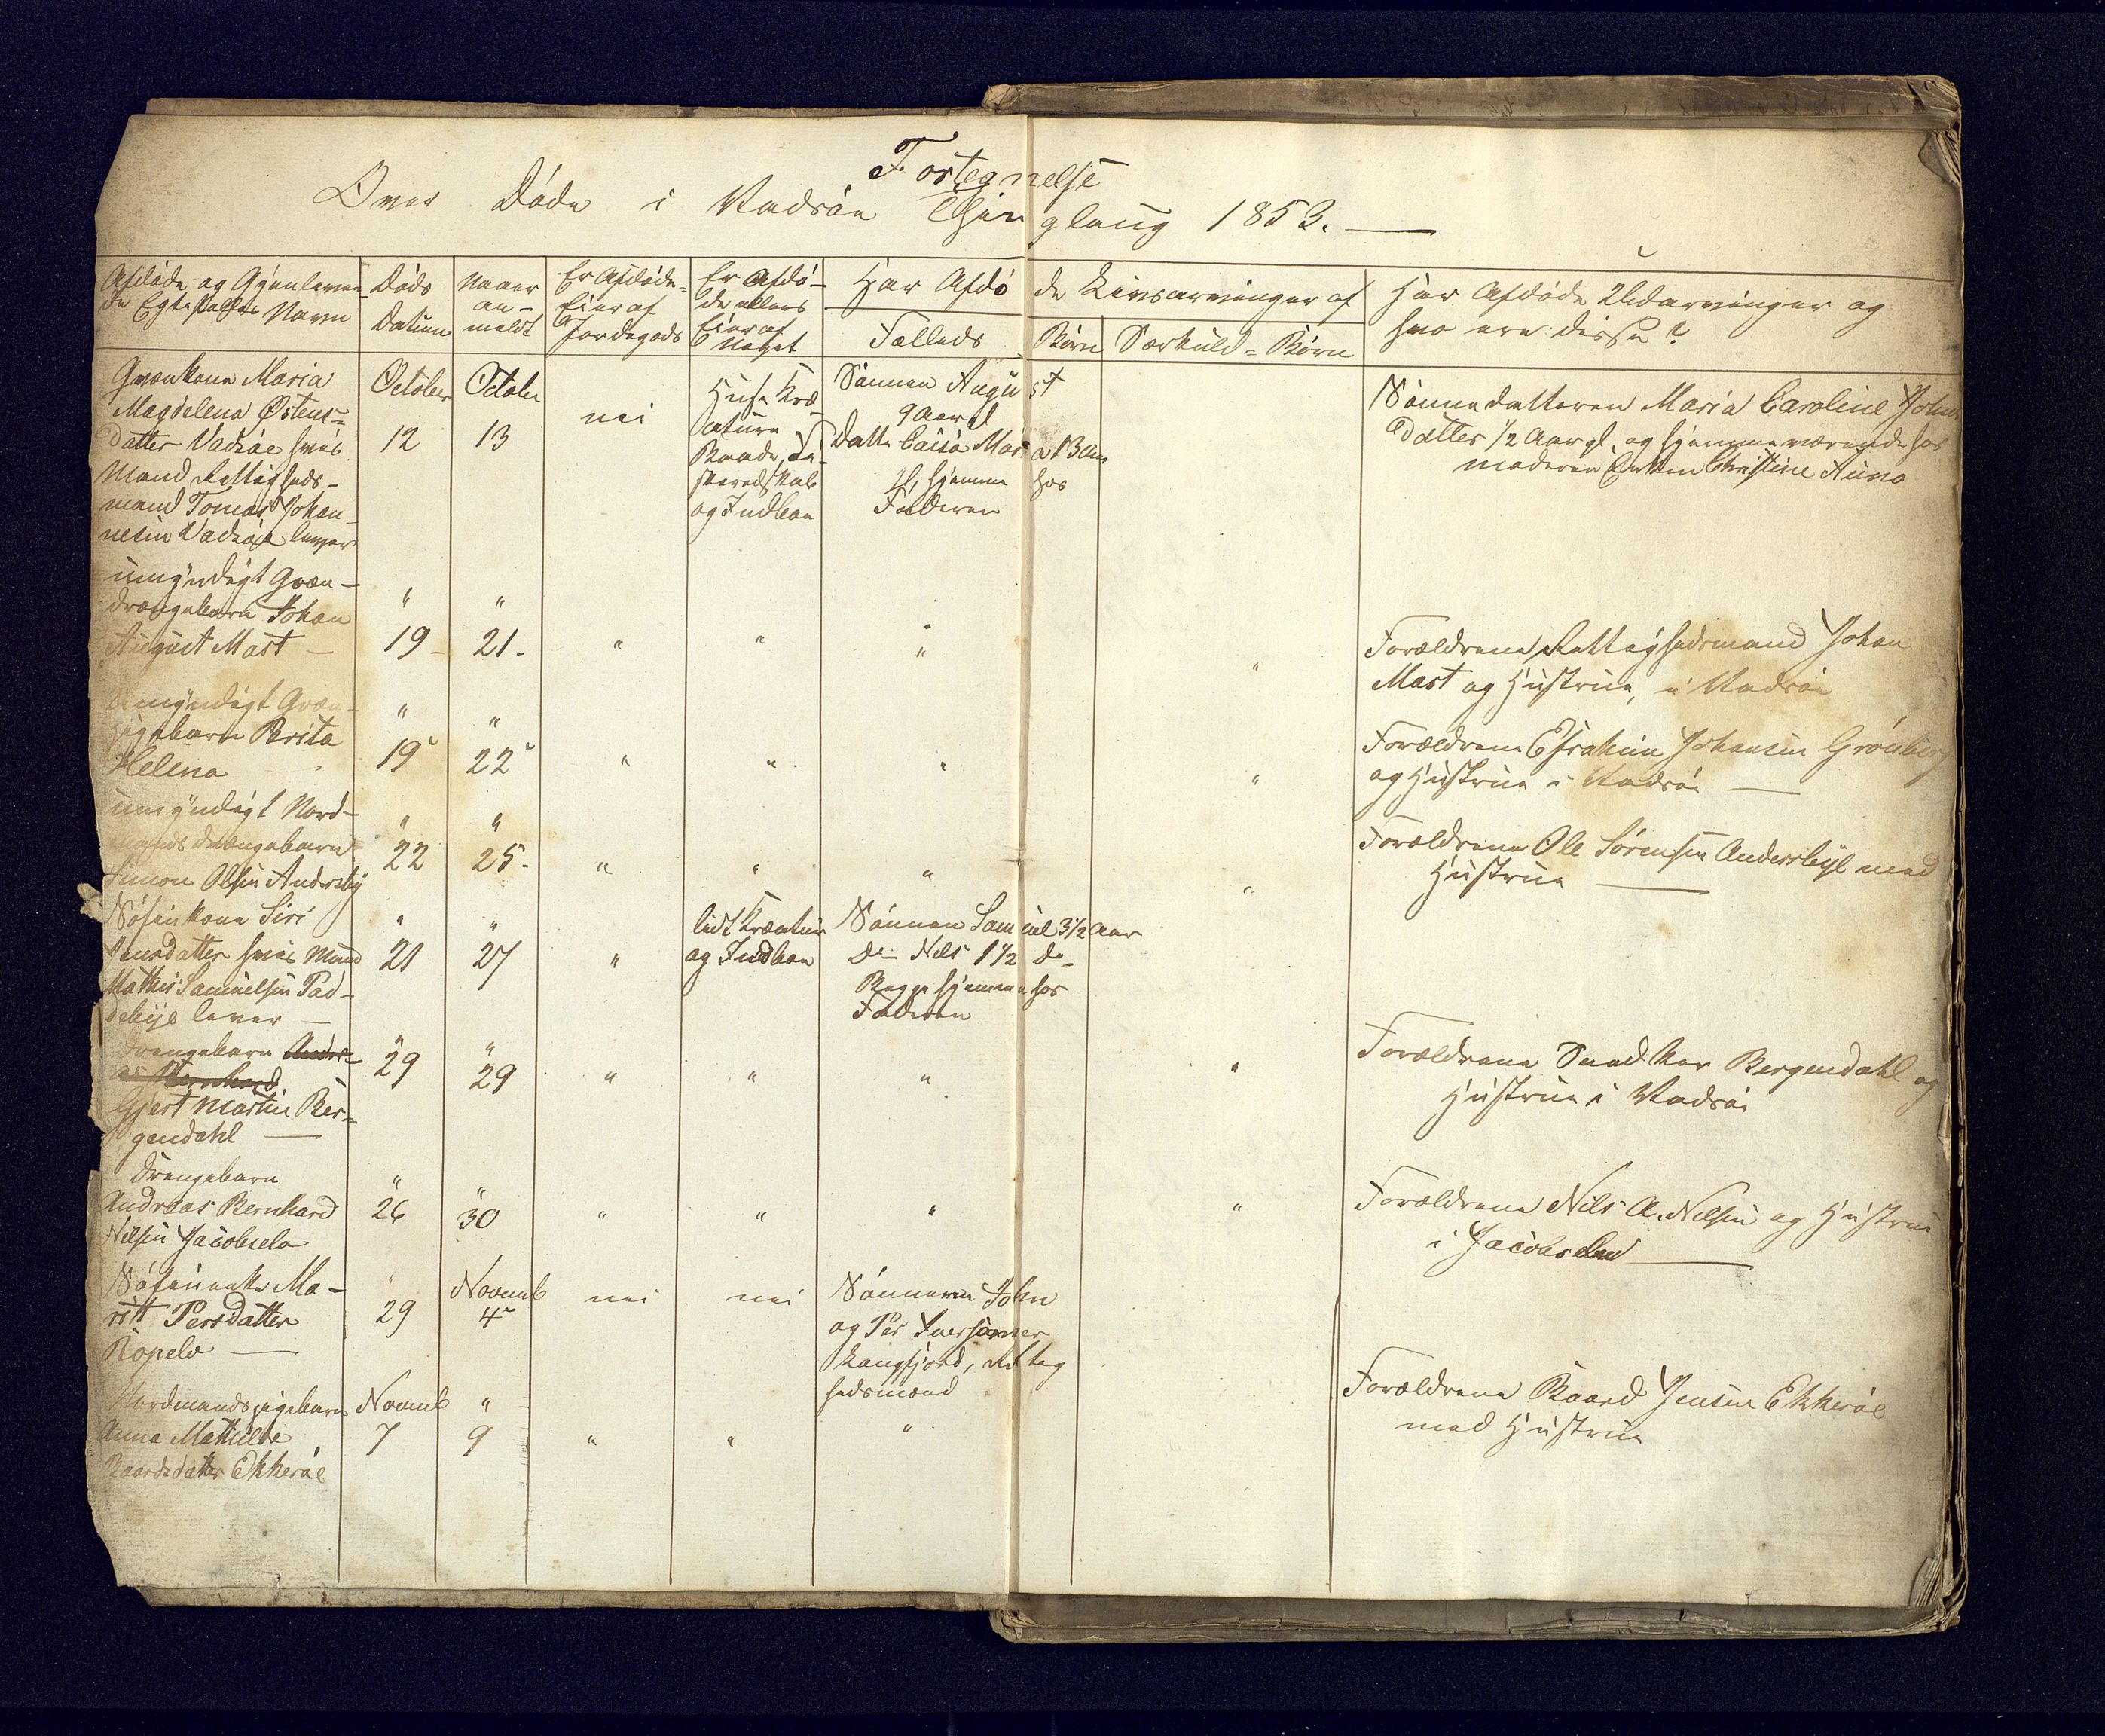 Fortegnelse
Over Døde i Vadsøe Thinglaug 1853.
Afdøde og Gjenleven-
de Egtefælles Navn
Døds
Datum
Naaar
an-
meldt
Er Afdøde
Eier af
Jordegods
Er Afdø-
de ellers
Eier af
Noget
Har Afdøde Livsarvinger af
Fælleds Børn
Særkuld-Børn
Har Afdøde Udarvinger og
hvo ere disse?
Qvænkone Maria
Magdelena Østens-
datter Vadsøe hvis
Mand Rettigheds-
mand Tomas Johan-
nesen Vadsøe lever
October
12
October
13
nei
Huse Kre-
ature
Baade, Fi-
skeredskab
og Indboe
Sønnen August
9 Aar gl
Datter Caisa Maria 13 Aar
gl, hjemme hos
Faderen
Sønnedatteren Maria Caroline Johns
datter 1/2 Aar gl. og hjemmeværende hos
moderen Enken Christine Auno
umyndigt Qvæn-
drængebarn Johan
August Mast -
" 19 -
" 21 -
"
"
"
"
Forældrene Rettighedsmand Johan
Mast og Hustrue, i Vadsøe
Umyndigt Qvæn-
pigebarn Brita
Helena -
" 19
" 22
"
"
"
"
Forældrene Efraim Johansen Grønberg
og Hustrue i Vadsøe -
umyndigt Nord-
mands drængebarn
Simon Olsen Andersby
" 22
" 25 -
"
"
"
"
Forældrene Ole Sørensen Andersbye med
Hustrue -
Søfinkone Siri
hvis Mand
Mathis Samuelsen Pad-
debye lever -
" 21
" 27
"
lidt Kreatur
og Indboe
Sønnen Samuel 3 1/2 Aar
Do Nils 1 1/2 Do
Begge hjemme hos
Faderen
Drengebarn Andre-
as Bernhard
Gjert Martin Ber-
gendahl -
" 29
" 29
"
"
"
"
Forældrene Snedker Bergendahl og
Hustrue i Vadsøe
Drengebarn
Andreas Bernhard
Nilsen Jacobselv
" 26
" 30
"
"
"
"
Forældrene Nils A. Nilsen og Hustrue
i Jacobselv -
Søfinenke Ma-
rit Persdatter
Ropelv -
" 29
Novemb
4
nei
nei
Sønnerne John
og Per Iversønner
Langfjord, Rettig
hedsmænd
Nordmandspigebarn
Anna Mathilde
Baardsdatter Ekkerøe
Novemb
7
"
9
"
"
"
Forældrene Baard Jensen Ekkerøe
med Hustrue